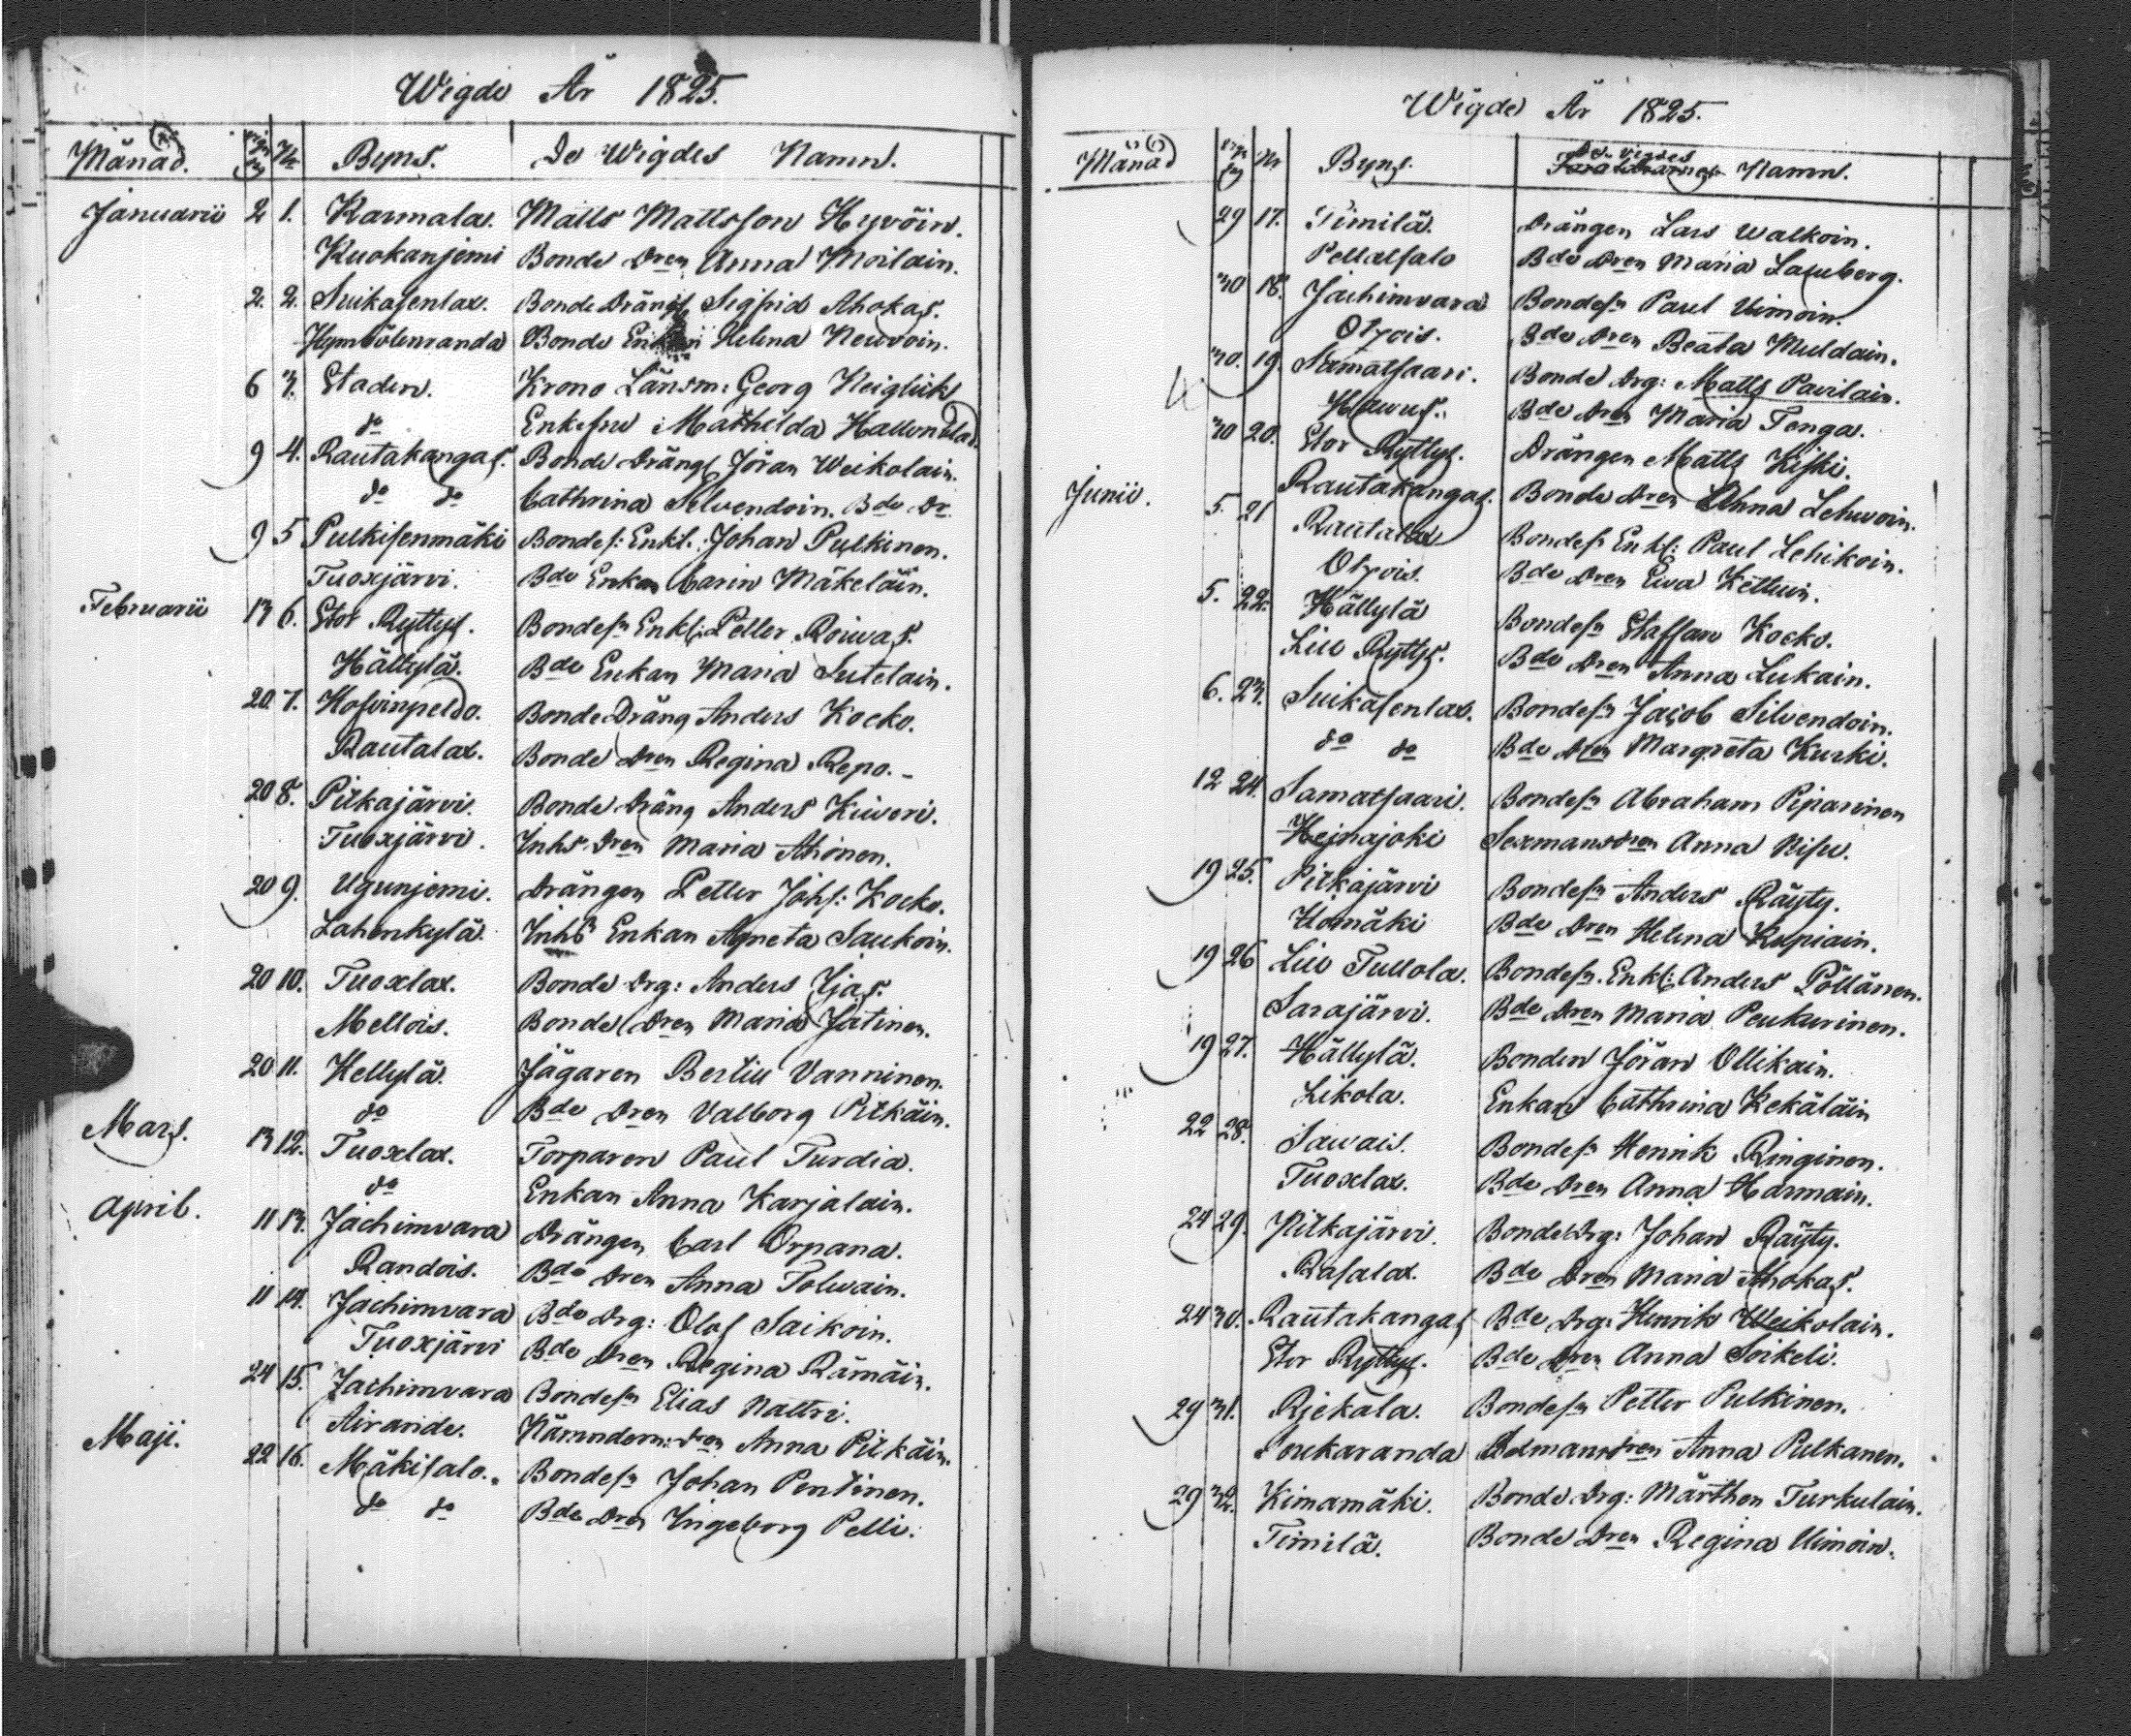 Wigde År 1825.
Månad. Dag No Byns. De Wigdes Namn.
Januarii 2 1. Karmala. Matts Mattsson Hyvöin.
Kuokanjemi Bonde Dren Anna Moilain.
2. 2. Suikasenlax. Bonde Drängs Sigfrid Ahokas.
Hymbölenranda Bonde Enkan Helena Newoin.
6 3. Staden. Krono Länsm: Georg Neiglick
do Enkefru Mathilda Hallonblad.
9 4. Rautakangas. Bonde Drängs Jöran Weikolain.
do do Cathrina Silvendoin. Bde Dr.
9 5 Pulkisenmäki Bondes: Enkl. Johan Pulkinen.
Tuoxjärvi. Bde Enkan Carin Mäkeläin.
Februarii 13 6. Stor Ryttys. Bondesn Enkl: Petter Roiwas.
Hällylä. Bde Enkan Maria Sutelain.
20 7. Hofvinpeldo. Bonde Dräng Anders Kocko.
Rautalax. Bonde Dren Regina Repo. -
20 8. Pitkajärvi. Bonde Dräng Anders Kiuveri.
Tuoxjärvi. Inhs Dren Maria Ahonen.
20 9. Ugunjemi. Drängen Petter Johs: Kocko.
Lahenkylä. Inhs Enkan Agneta Saukoin.
20 10. Tuoxlax. Bonde Drg: Anders Ijas.
Mellois. Bonde Dren Maria Jätinen.
20 11. Hellylä. Jägaren Bertill Vanninen.
do Bde Dren Valborg Pitkäin.
Mars. 13 12. Tuoxlax. Torparen Paul Turdia.
do Enkan Anna Karjalain.
April. 11 13. Jachimvara Drängen Carl Orpana.
Randois. Bde Dren Anna Tolvain.
11 14. Jachimvara Bde Drg: Olof Saikoin.
Tuoxjärvi Bde Dren Regina Rämäin.
24 15. Jachimvara Bondesn Elias Nattri.
Airande. Nämndem: Dren Anna Pitkäin.
Maji. 22 16. Mäkisalo. Bondesn Johan Pentinen.
do do Bde Dren Ingeborg Pelli.
Wigde År 1825.
Månad Dag No Byns. De vigdes Namn.
29 17. Timilä. Drängen Lars Walkoin.
Pellalsalo Bde Dren Maria Lauberg.
30 18. Jachimvara Bondesn Paul Uimoin.
Otzois. Bde Dren Beata Muldain.
30. 19. Samatsaari. Bonde Drg: Matts Pavilain.
Hauus. Bde Dren Maria Tenga.
30 20. Stor Ryttys. Drängen Matts Kiski.
Rautakangas. Bonde Dren Anna Lehwoin.
Junii. 5. 21 Rautalax Bondesn Enkl: Paul Lehikoin.
Otzois. Bde Dren Ewa Kettuin.
5. 22. Hällylä Bondesn Staffan Kocko.
Lill Ryttys. Bde Dren Anna Lukain.
6. 23. Suikasenlax. Bondesn Jacob Silvendoin.
do do Bde Dren Margreta Kurki.
12 24. Samatsaari. Bondesn Abraham Piparinen
Hejnajoki Sexmansdren Anna Nisu.
19 25. Pitkäjärvi Bondesn Anders Räyty.
Homäki Bde Dren Helena Kupiain.
19 26 Lill Tullola. Bondesn. Enkl: Anders Pöllänen.
Sarajärvi. Bde Dren Maria Peukurinen.
19 27. Hällylä. Bonden Jöran Ollikain.
Likola. Enkan Cathrina Kekäläin
22 28. Sawais. Bondesn Henrik Ringinen.
Tuoxlax. Bde Dren Anna Harmain.
24 29. Pitkajärvi. Bonde Drg: Johan Räyty.
Rasalax. Bde Dren Maria Ahokas.
24 30. Rautakangas Bde Drg: Henrik Weikolain.
Stor Ryttys. Bde Dren Anna Sorkeli.
29 31. Rjekala. Bondesn Petter Pulkinen.
Poukaranda Dren Anna Pulkanen.
29 32. Kimamäki. Bonde Drg: Mårthen Turkulain.
Timilä. Bonde Dren Regina Uimoin.